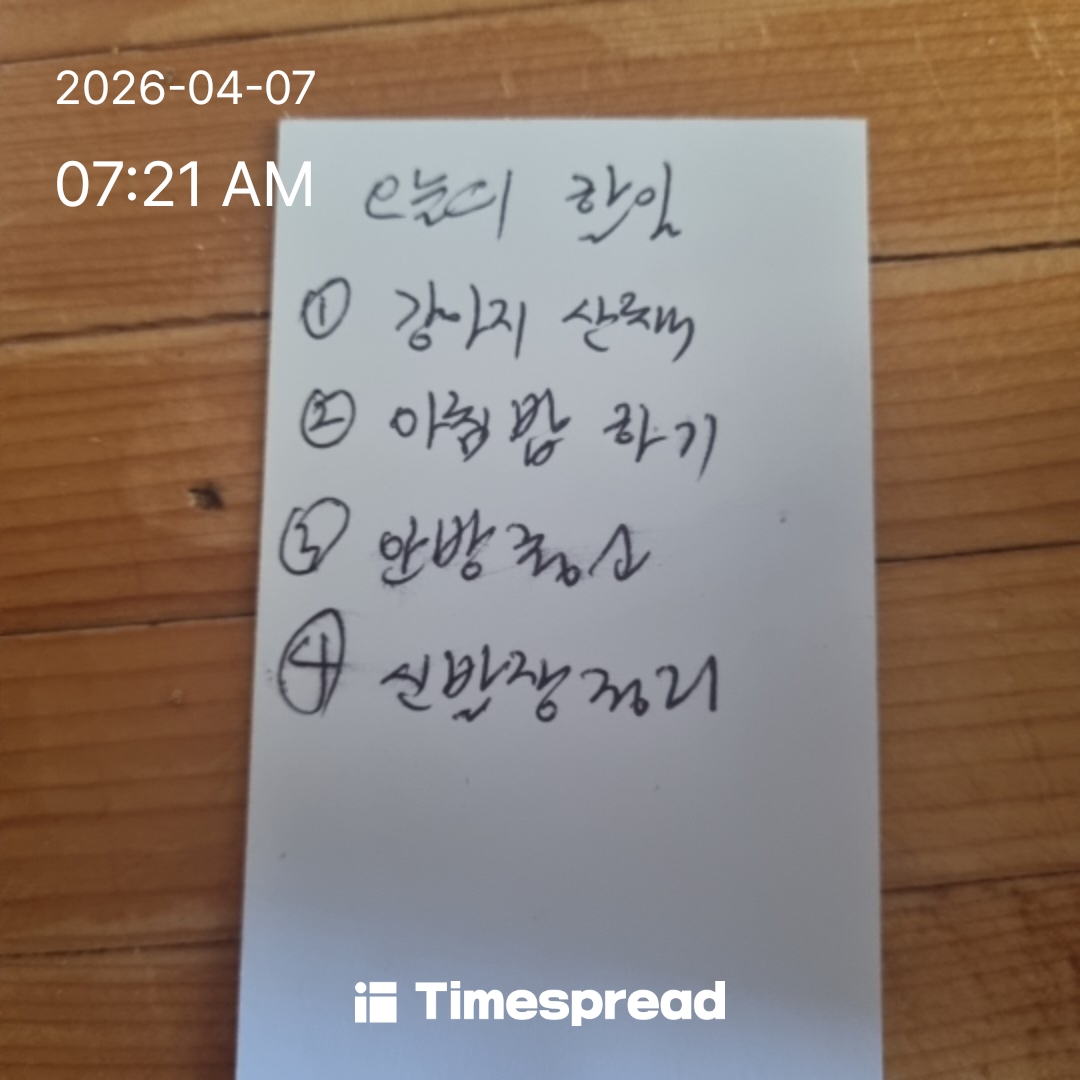 2026-04-07
07:21 AM
오늘의 할일
① 강아지 산책
② 아침밥 하기
③ 안방청소
④ 신발장정리
Timespread